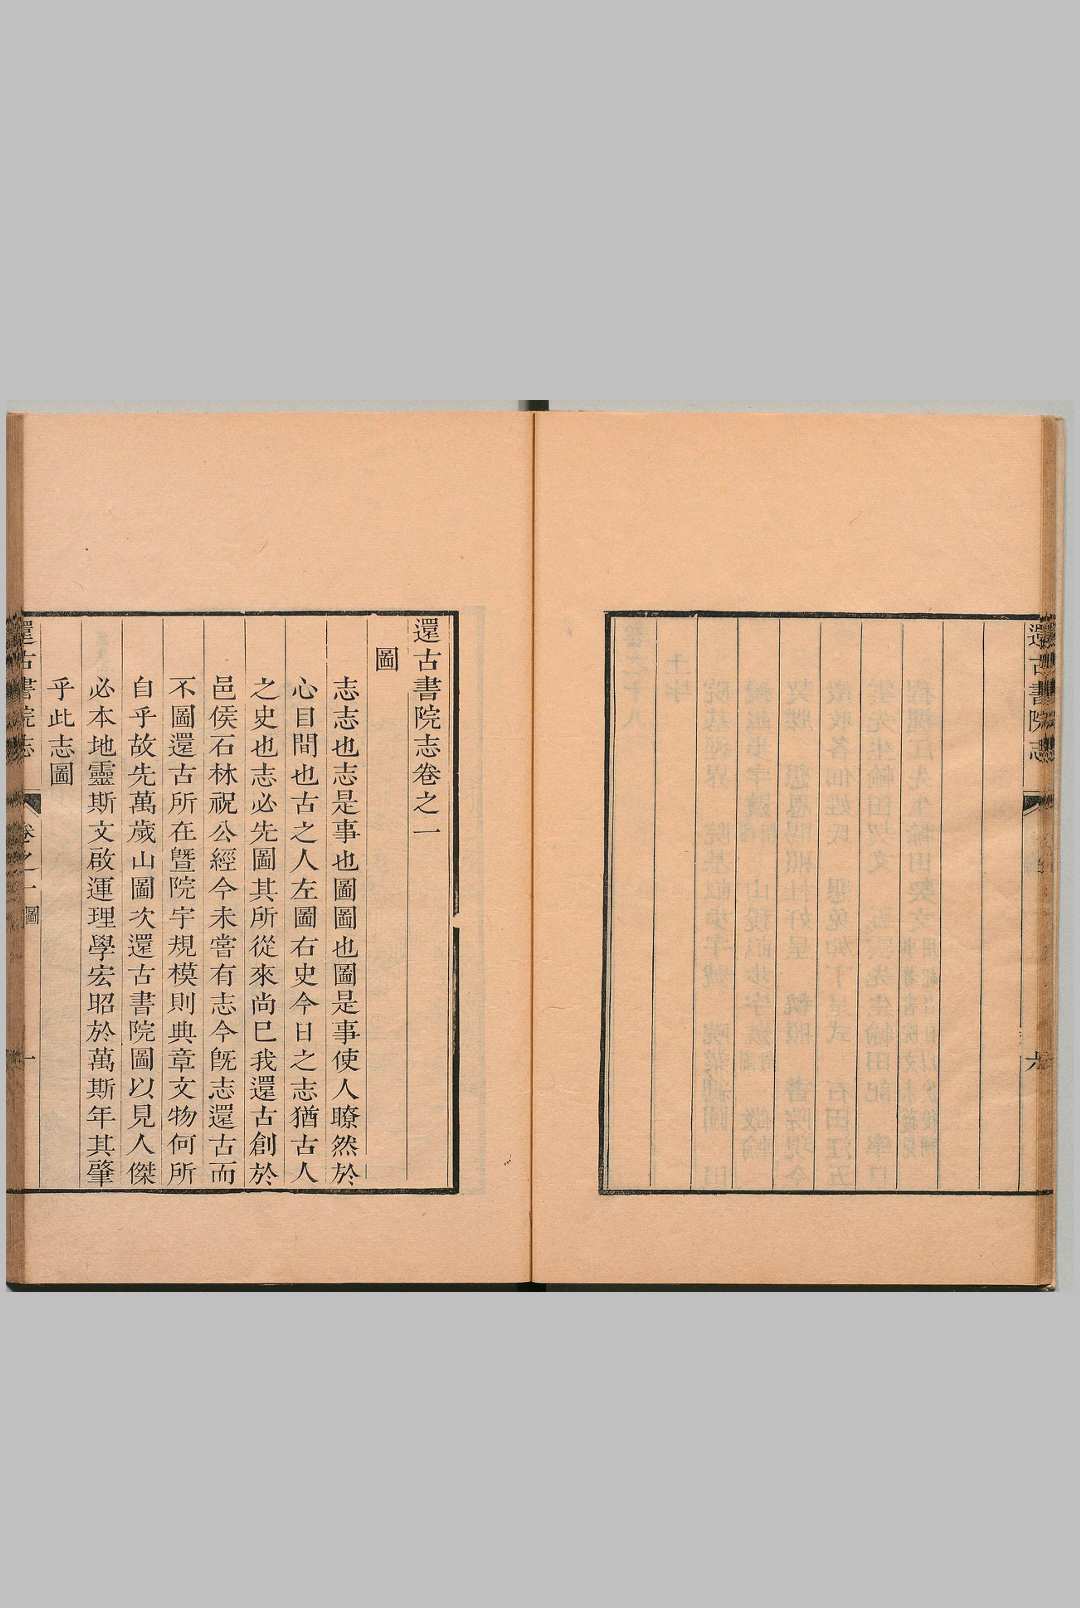 還古書院志
六
還古書院志卷之一
圖
志志也志是事也圖圖也圖是事使人瞭然於
心目間也古之人左圖右史今日之志猶古人
之史也志必先圖其所從來尚巳我還古創於
邑侯石林祝公經今未嘗有志今旣志還古而
不圖還古所在暨院宇規模則典章文物何所
自乎故先萬歲山圖次還古書院圖以見人傑
必本地靈斯文啟運理學宏昭於萬斯年其肇
乎此志圖
還古書院志
卷之一 圖
一